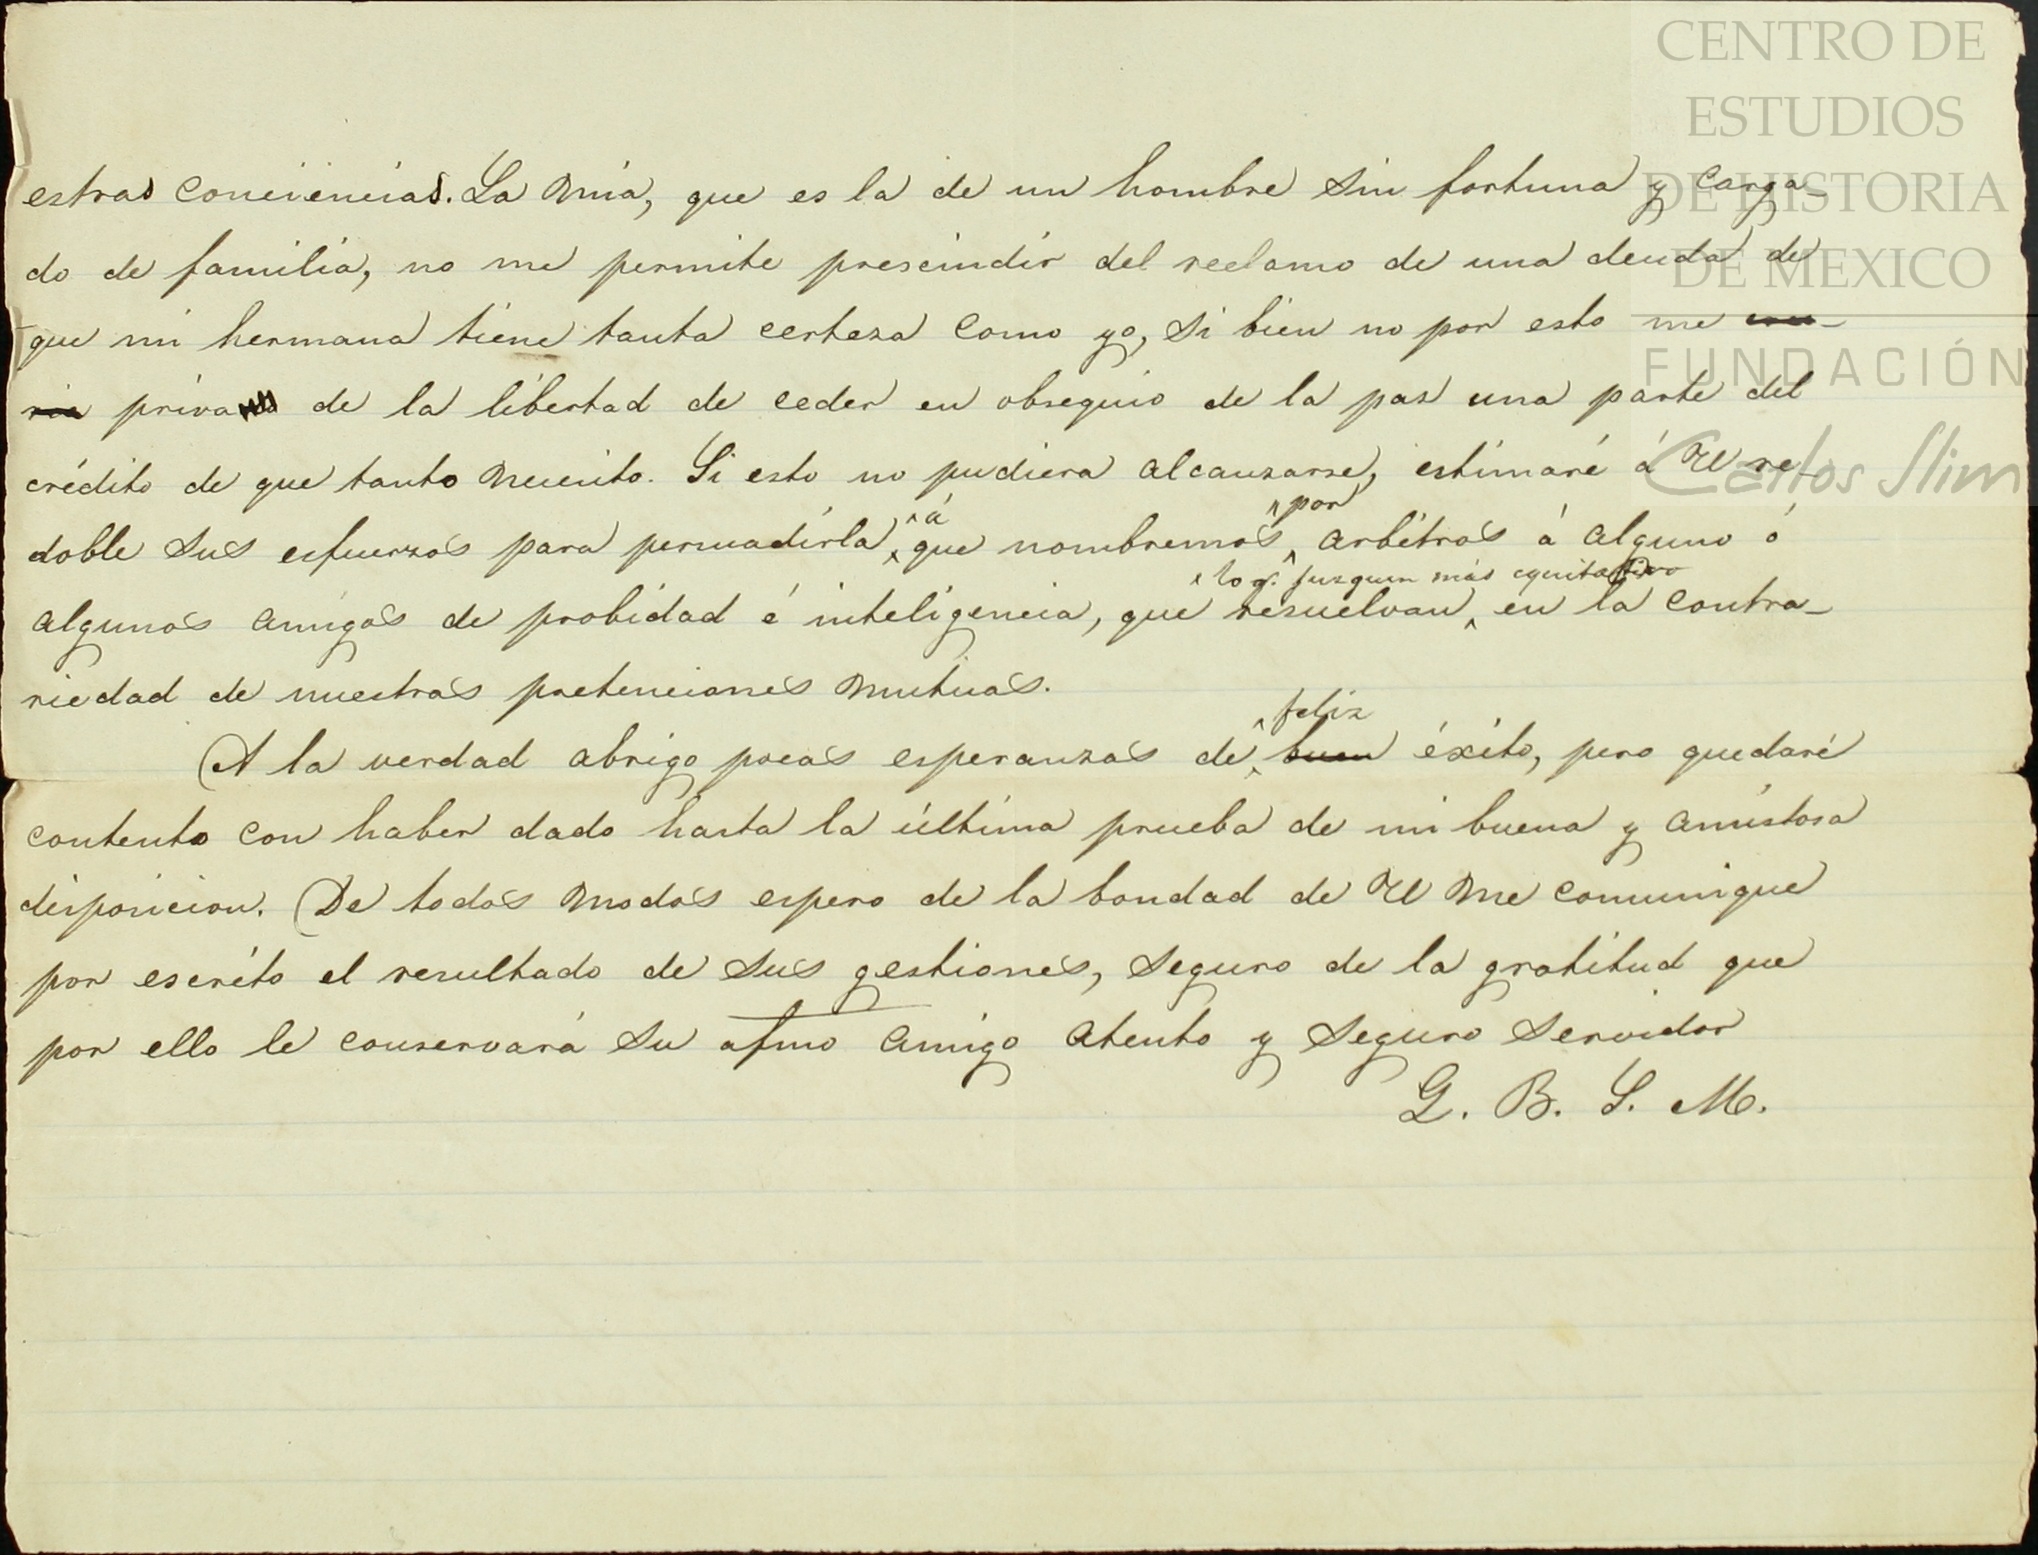 CENTRO DE
ESTUDIOS
DE HISTORIA
DE MEXICO
FUNDACIÓN
Carlos Slim
estras conciencias. La mia, que es la de un hombre sin fortuna y carga-
do de familia, no me permite prescindir del reclamo de una deuda de
que mi hermana tiene tanta certeza como yo, si bien no por esto me
priva de la libertad de ceder en obsequio de la paz una parte del
crédito de que tanto necesito. Si esto no pudiera alcanzarse, estimaré á U re-
doble sus esfuerzos para persuadirla á que nombremos por arbitros á alguno ó
algunos amigos de probidad é inteligencia, que resuelvan lo q. juzguen más equitativo en la contra-
riedad de nuestras pretenciones mutuas.
A la verdad abrigo pocas esperanzas de buen feliz éxito, pero quedaré
contento con haber dado hasta la última prueba de mi buena y amistosa
disposicion. De todos modos espero de la bondad de U me comunique
por escrito el resultado de sus gestiones, seguro de la gratitud que
por ello le conservará su afmo amigo atento y seguro servidor
Q. B. S. M.